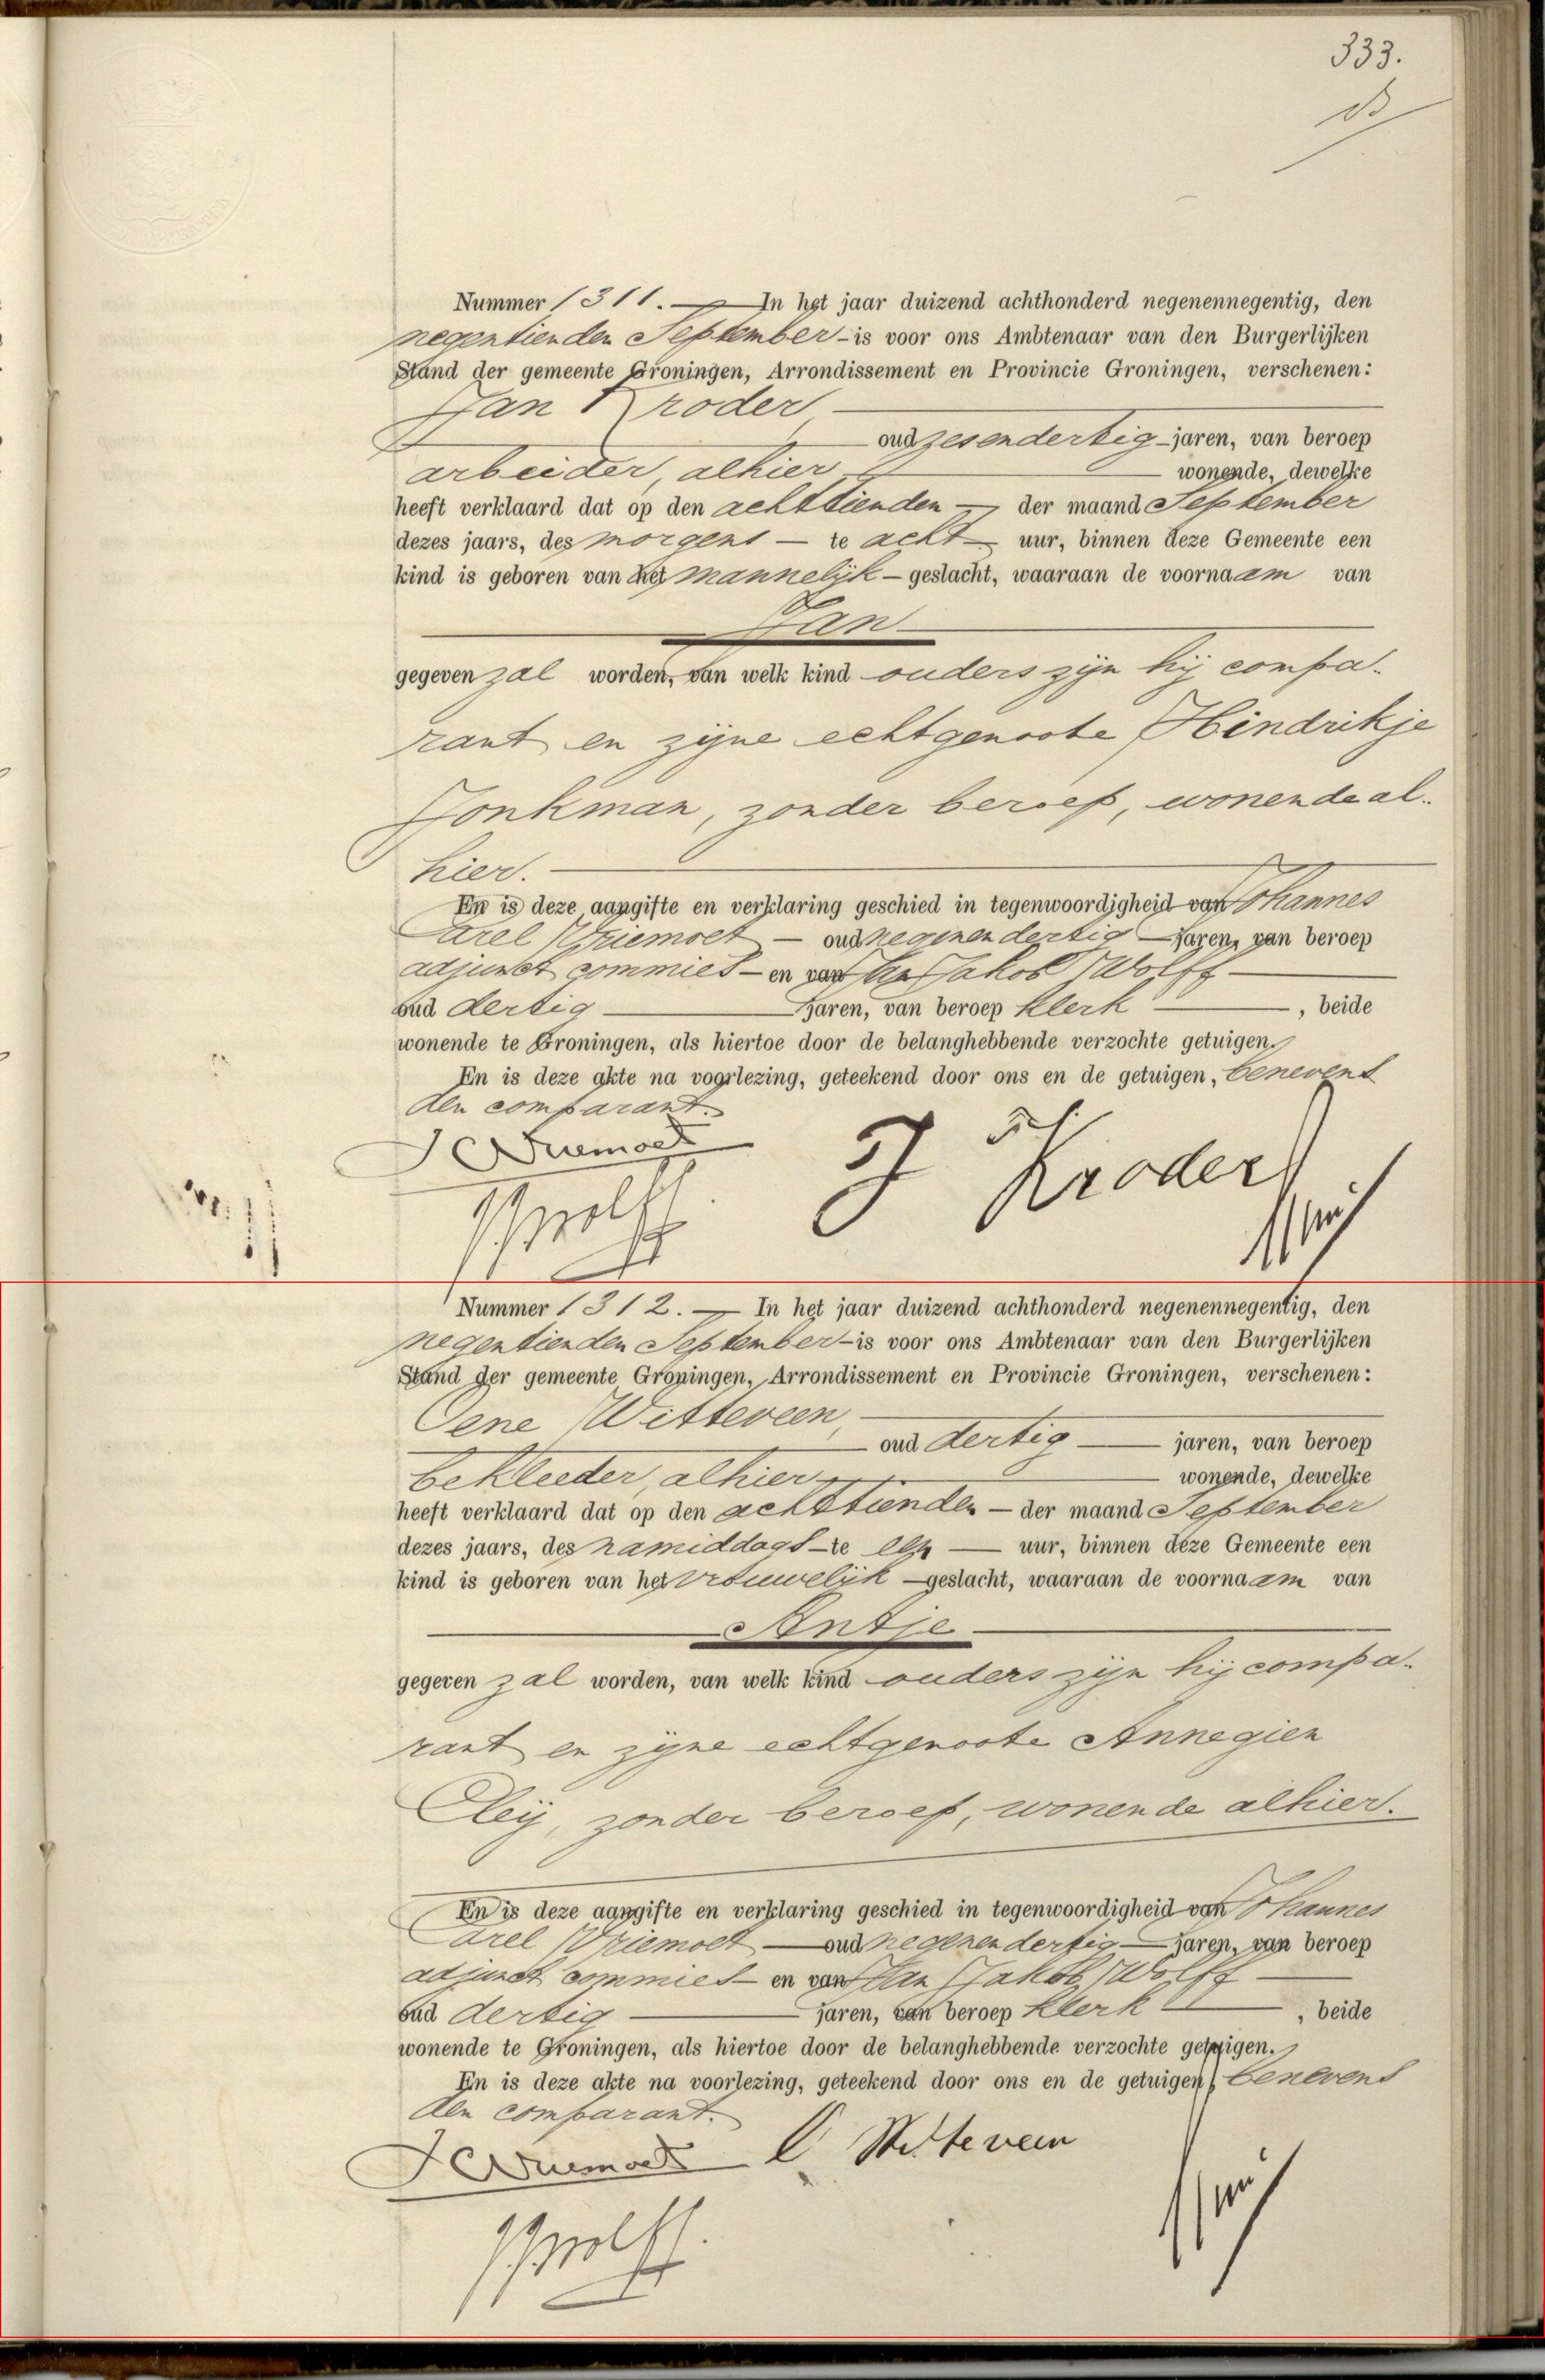 333.
Nummer 1311. — In het jaar duizend achthonderd negenennegentig, den
negentienden September - is voor ons Ambtenaar van den Burgerlijken
Stand der gemeente Groningen, Arrondissement en Provincie Groningen, verschenen:
Jan Kroder,
oud zesendertig jaren, van beroep
arbeider, alhier wonende, dewelke
heeft verklaard dat op den achttienden — der maand September
dezes jaars, des morgens — te acht — uur, binnen deze Gemeente een
kind is geboren van het mannelijk — geslacht, waaraan de voornaam van
Jan
gegeven zal worden, van welk kind ouders zijn hij compa-
rant en zijne echtgenoote Hindrikje
Jonkman, zonder beroep, wonende al-
hier.
En is deze aangifte en verklaring geschied in tegenwoordigheid van Johannes
Carel Vriemoet — oud negenendertig jaren, van beroep
adjunct commies — en van Jan Jakob Wolff
oud dertig jaren, van beroep klerk , beide
wonende te Groningen, als hiertoe door de belanghebbende verzochte getuigen.
En is deze akte na voorlezing, geteekend door ons en de getuigen, benevens
den comparant.
J C Vriemoet J Kroder
JJWolff
Nummer 1312. — In het jaar duizend achthonderd negenennegentig, den
negentienden September - is voor ons Ambtenaar van den Burgerlijken
Stand der gemeente Groningen, Arrondissement en Provincie Groningen, verschenen:
Oene Witteveen,
oud dertig — jaren, van beroep
bekleeder, alhier wonende, dewelke
heeft verklaard dat op den achttienden — der maand September
dezes jaars, des namiddags — te een — uur, binnen deze Gemeente een
kind is geboren van het vrouwelijk — geslacht, waaraan de voornaam van
Antje
gegeven zal worden, van welk kind ouders zijn hij compa-
rant en zijne echtgenoote Annegien
Cleij, zonder beroep, wonende alhier.
En is deze aangifte en verklaring geschied in tegenwoordigheid van Johannes
Carel Vriemoet — oud negenendertig — jaren, van beroep
adjunct commies — en van Jan Jakob Wolff
oud dertig jaren, van beroep klerk , beide
wonende te Groningen, als hiertoe door de belanghebbende verzochte getuigen.
En is deze akte na voorlezing, geteekend door ons en de getuigen, benevens
den comparant.
J C Vriemoet O Witteveen
JJWolff.